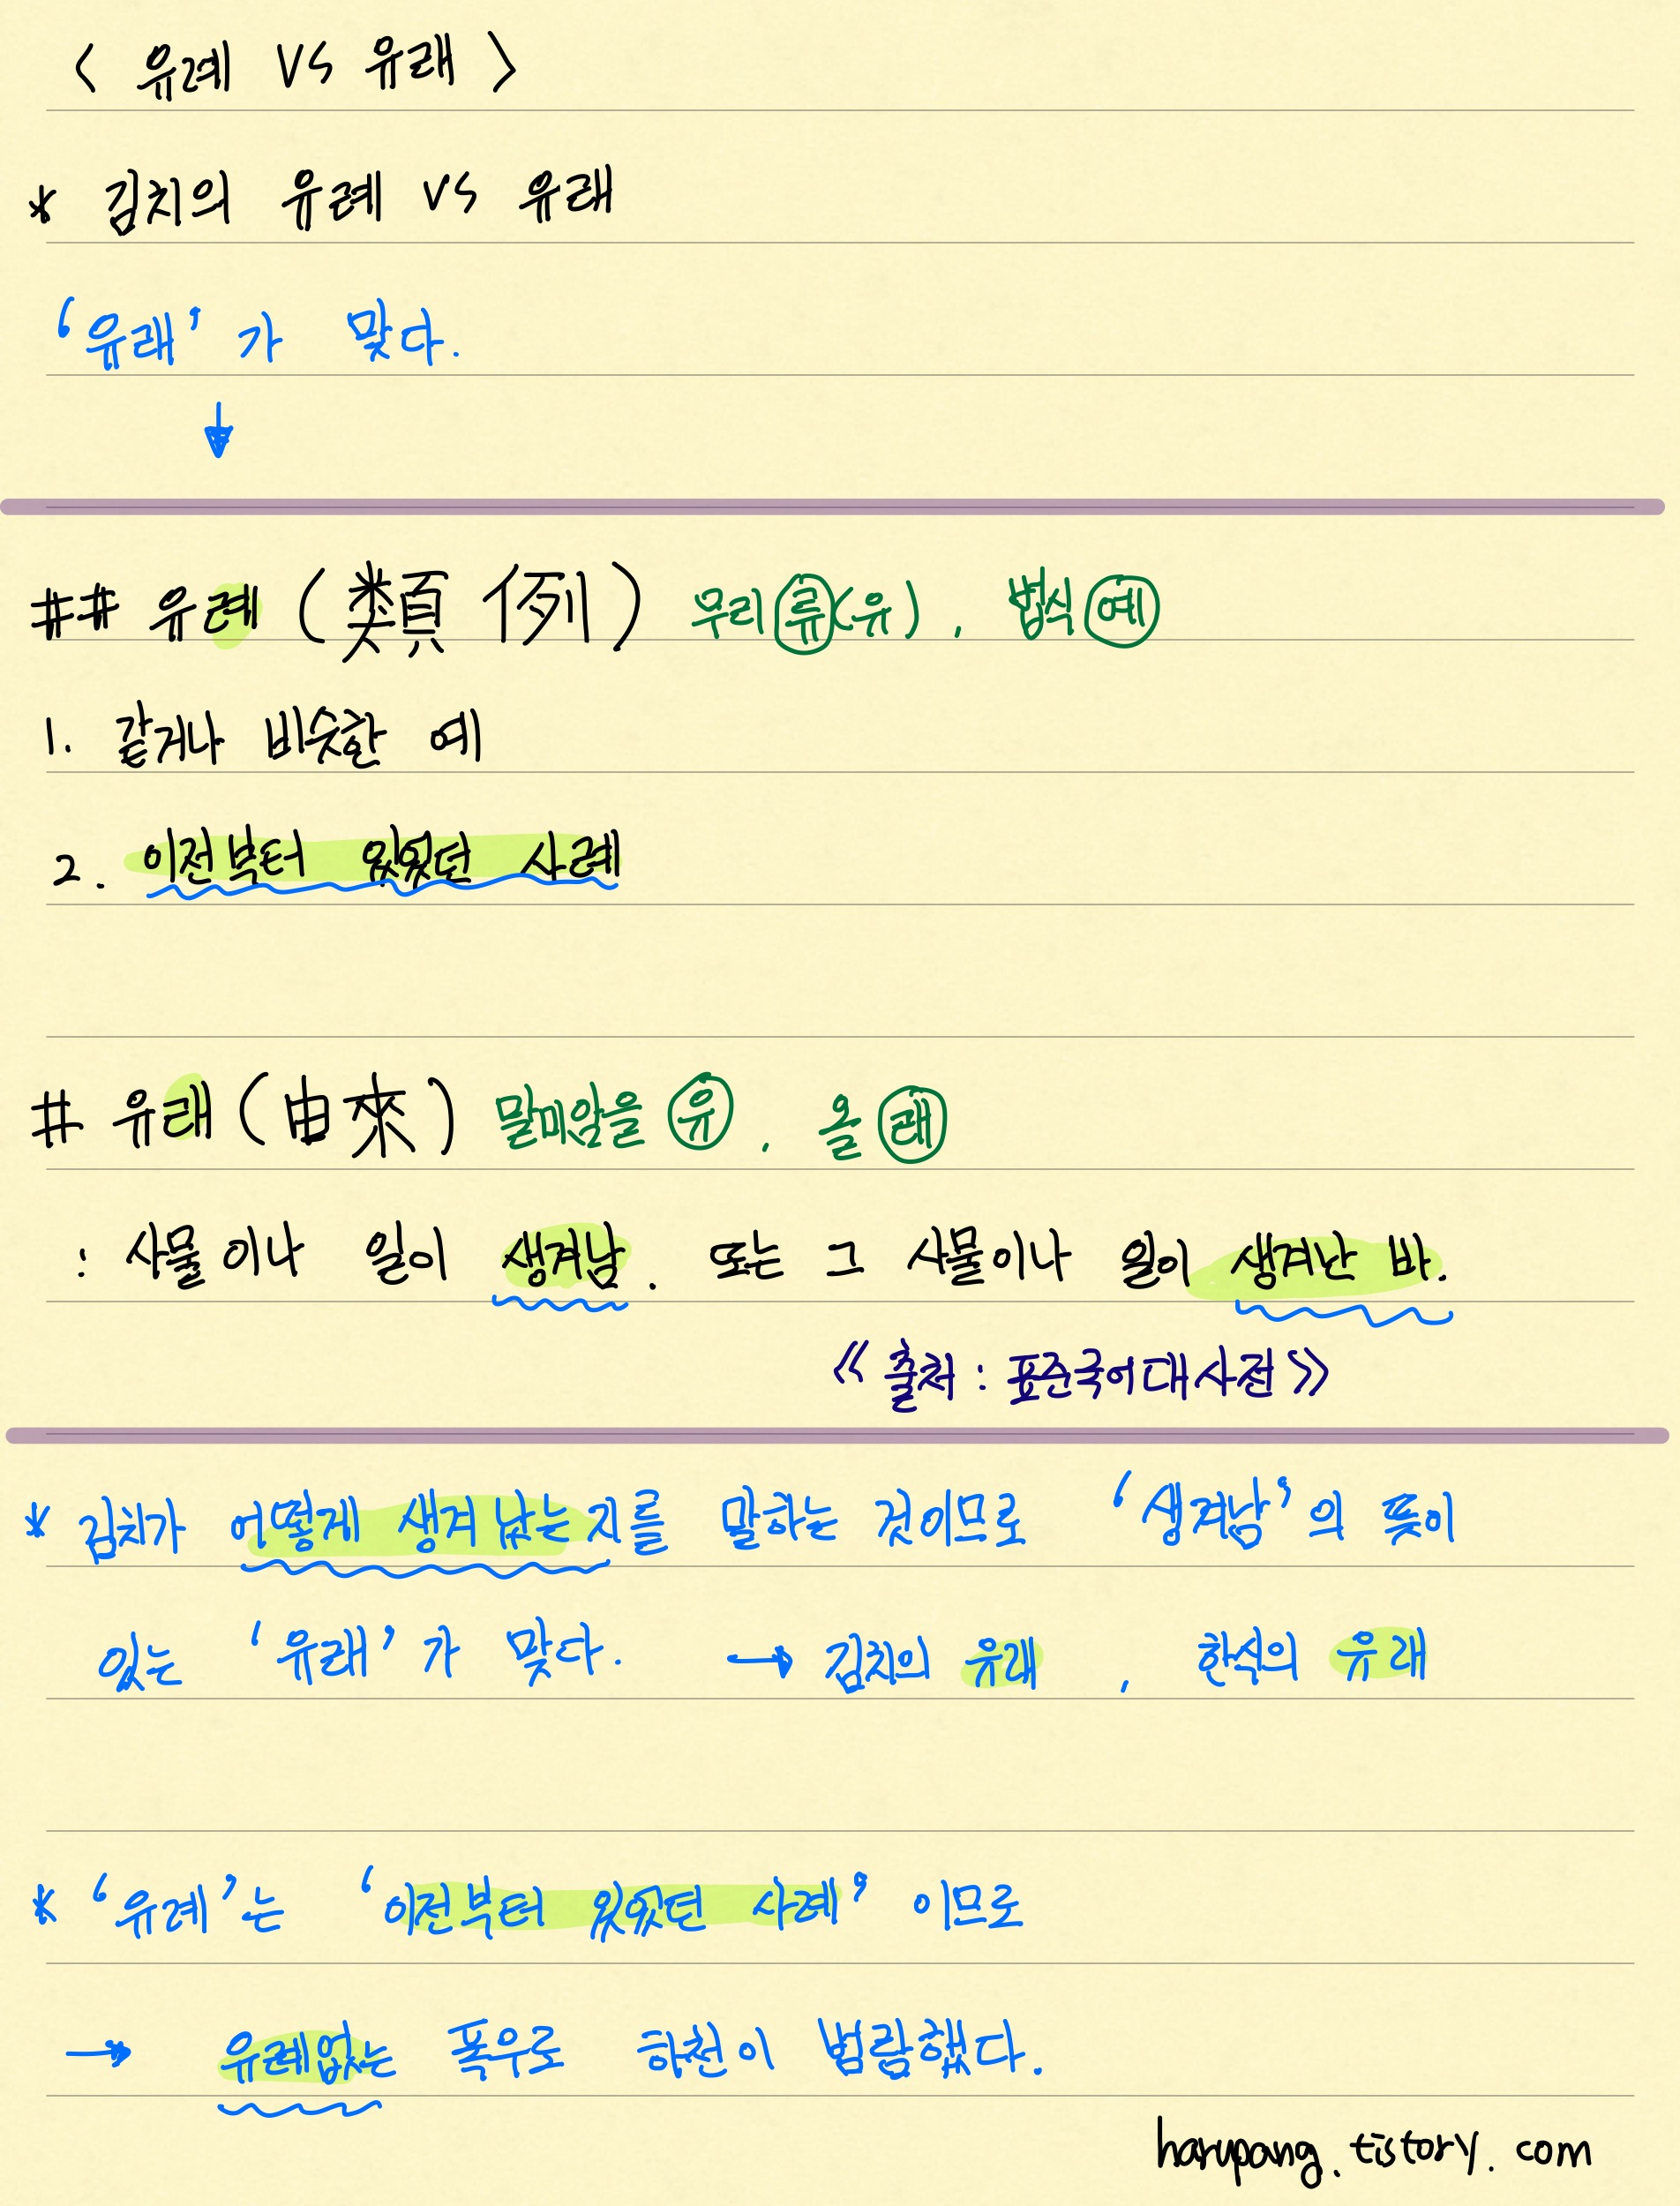 < 유례 VS 유래 >
* 김치의 유례 vs 유래
'유래'가 맞다.
↓
## 유례 (類例) 무리 류(유), 법식 예
1. 같거나 비슷한 예
2. 이전부터 있었던 사례
# 유래(由來) 말미암을 유, 올 래
: 사물이나 일이 생겨남. 또는 그 사물이나 일이 생겨난 바.
《출처 : 표준국어대사전》
* 김치가 어떻게 생겨났는지를 말하는 것이므로 '생겨남'의 뜻이
있는 '유래'가 맞다. → 김치의 유래, 한식의 유래
* '유례'는 '이전부터 있었던 사례' 이므로
→ 유례없는 폭우로 하천이 범람했다.
harupang.tistory.com